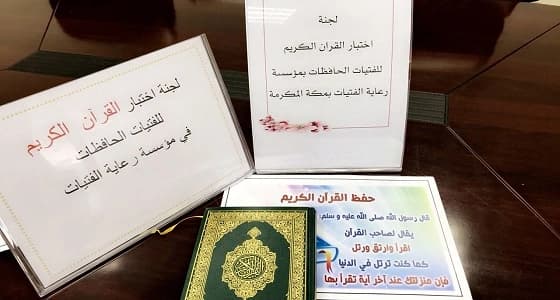 لجنة اختبار القرآن الكريم
للفتيات الحافظات
في مؤسسة رعاية الفتيات
لجنة
اختبار القران الكريم
للفتيات الحافظات بمؤسسة
رعاية الفتيات بمكة المكرمة
حفظ القرآن الكريم
قال رسول الله صلى الله عليه و سلم:
يقال لصاحب القرآن
اقرأ وارتق ورتل
كما كنت ترتل في الدنيا
فإن منزلتك عند آخر آية تقرأ بها